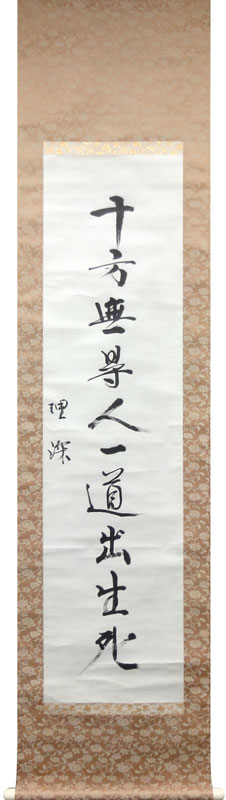 十方無㝵人一道出生死
理深